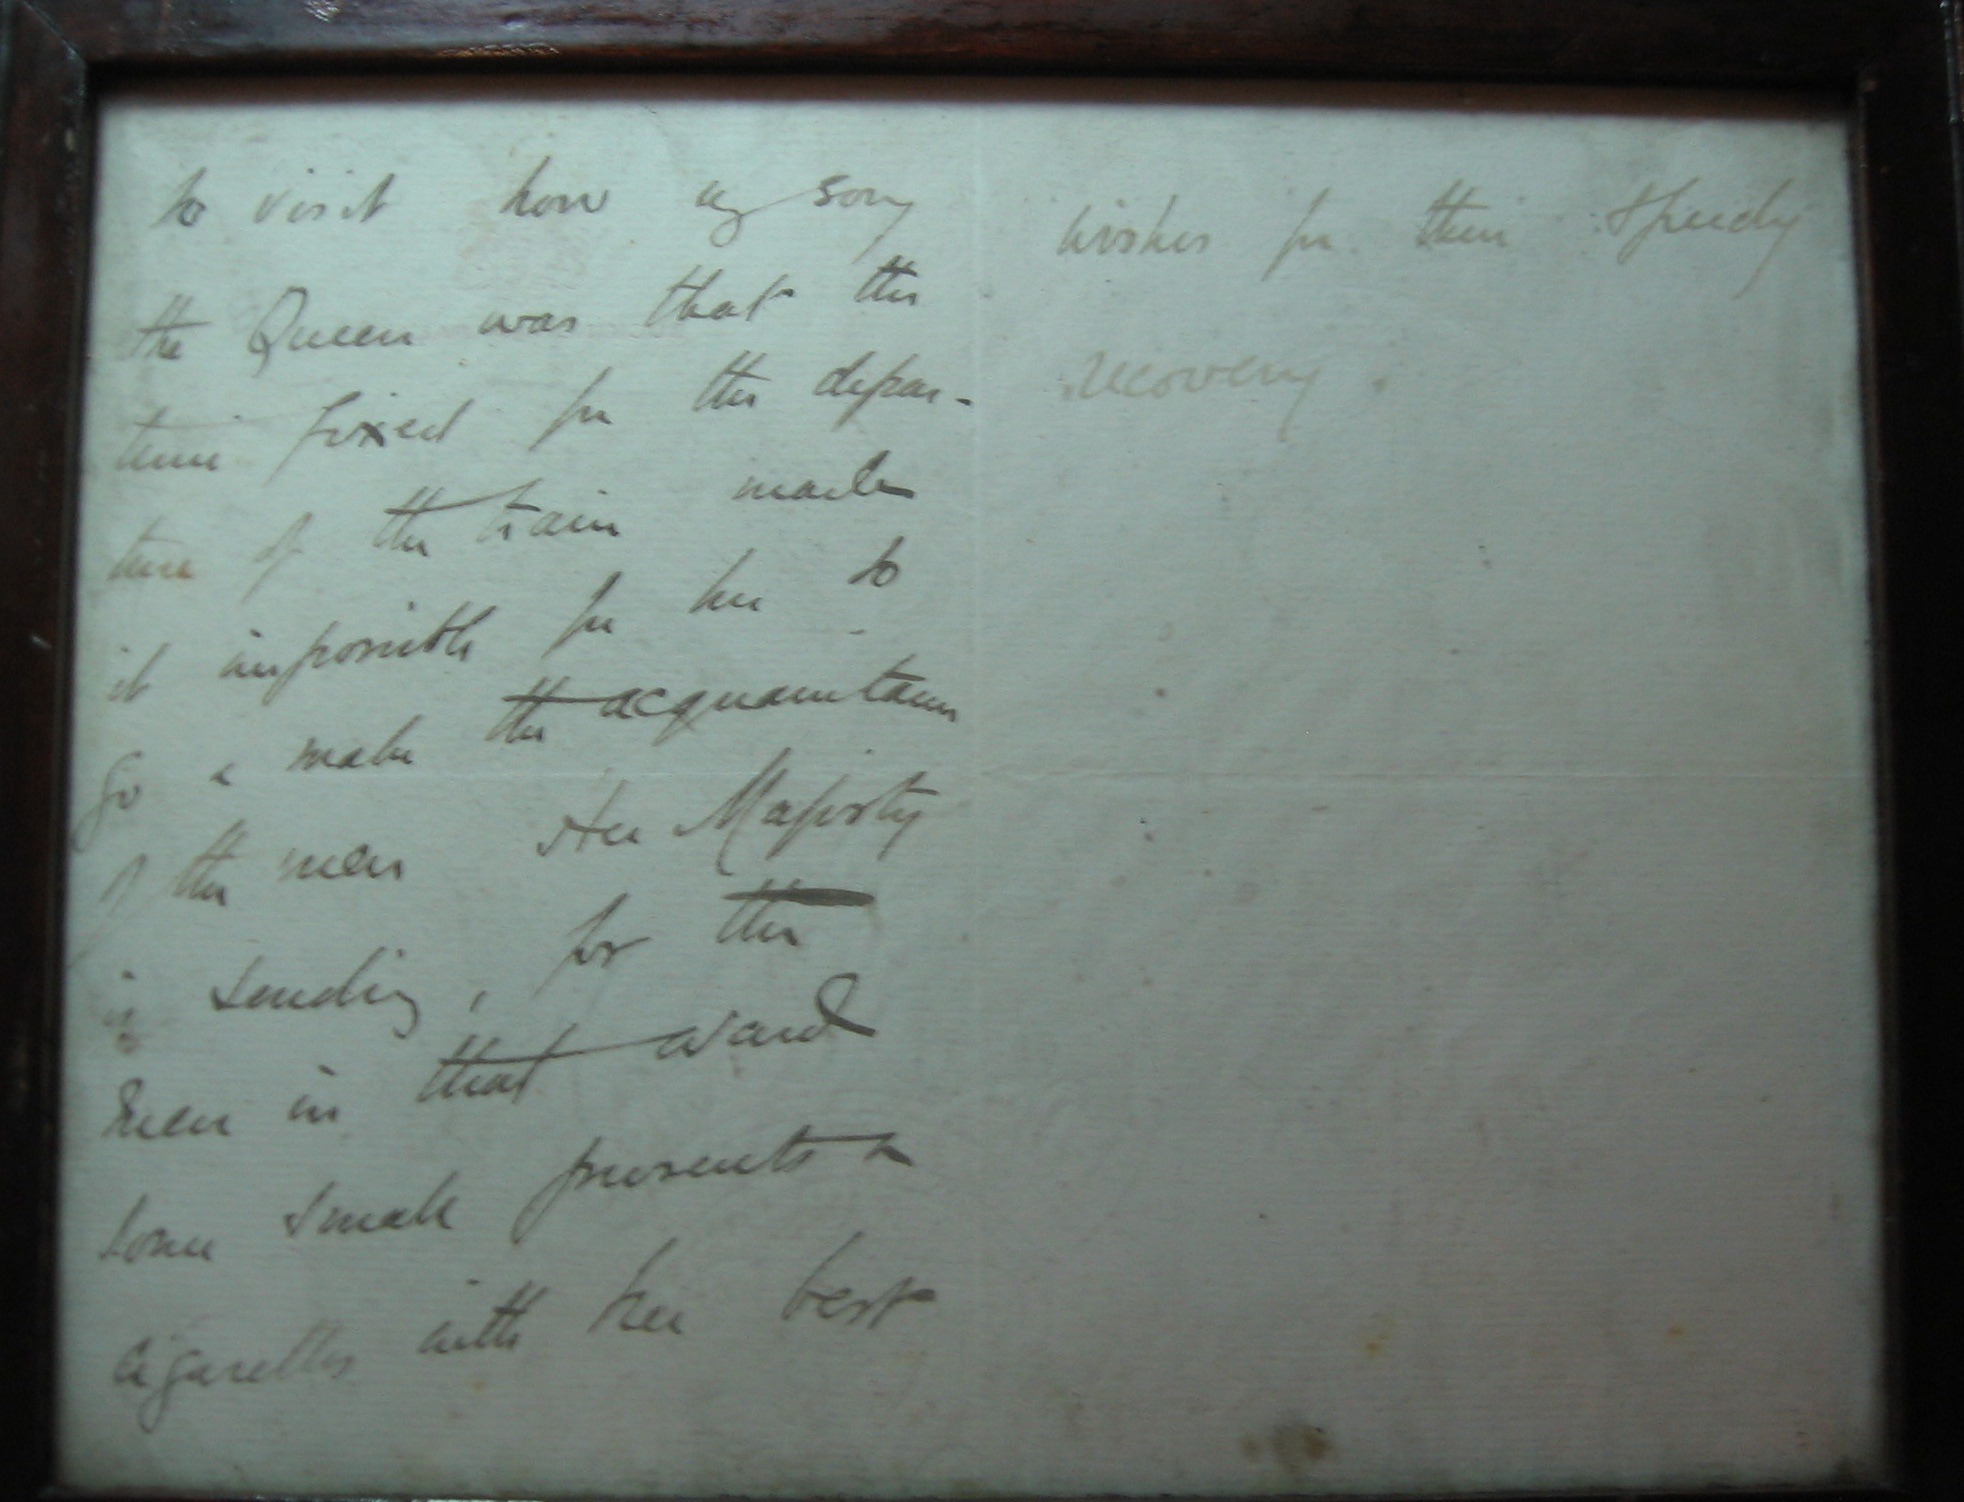 to visit how sorry
the Queen was that the
time fixed for the depar-
ture of the train made
it impossible for her to
go & make the acquaintance
of the men Her Majesty
is sending, for the
men in that ward
some small presents &
cigarettes with her best
wishes for their speedy
recovery.